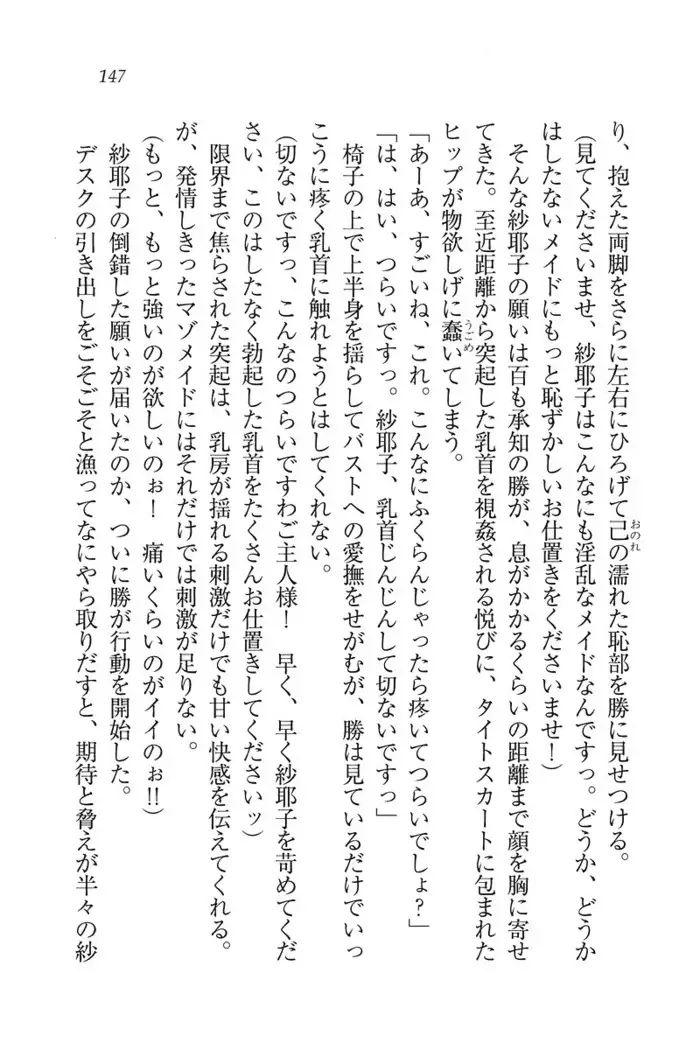 147
り、抱えた両脚をさらに左右にひろげて己の濡れた恥部を勝に見せつける。
おのれ
(見てくださいませ、紗耶子はこんなにも淫乱なメイドなんですっ。どうか、どうか
はしたないメイドにもっと恥ずかしいお仕置きをくださいませ!)
そんな紗耶子の願いは百も承知の勝が、息がかかるくらいの距離まで顔を胸に寄せ
てきた。至近距離から突起した乳首を視姦される悦びに、タイトスカートに包まれた
ヒップが物欲しげに蠢いてしまう。
うごめ
「あーあ、すごいね、これ。こんなにふくらんじゃったら疼いてつらいでしょ?」
「は、はい、つらいですっ。紗耶子、乳首じんじんして切ないですっ」
椅子の上で上半身を揺らしてバストへの愛撫をせがむが、勝は見ているだけでいっ
こうに疼く乳首に触れようとはしてくれない。
(切ないですっ、こんなのつらいですわご主人様! 早く、早く紗耶子を苛めてくだ
さい、このはしたなく勃起した乳首をたくさんお仕置きしてくださいッ)
限界まで焦らされた突起は、乳房が揺れる刺激だけでも甘い快感を伝えてくれる。
が、発情しきったマゾメイドにはそれだけでは刺激が足りない。
(もっと、もっと強いのが欲しいのぉ! 痛いくらいのがイイのぉ!!)
紗耶子の倒錯した願いが届いたのか、ついに勝が行動を開始した。
デスクの引き出しをごそごそと漁ってなにやら取りだすと、期待と脅えが半々の紗